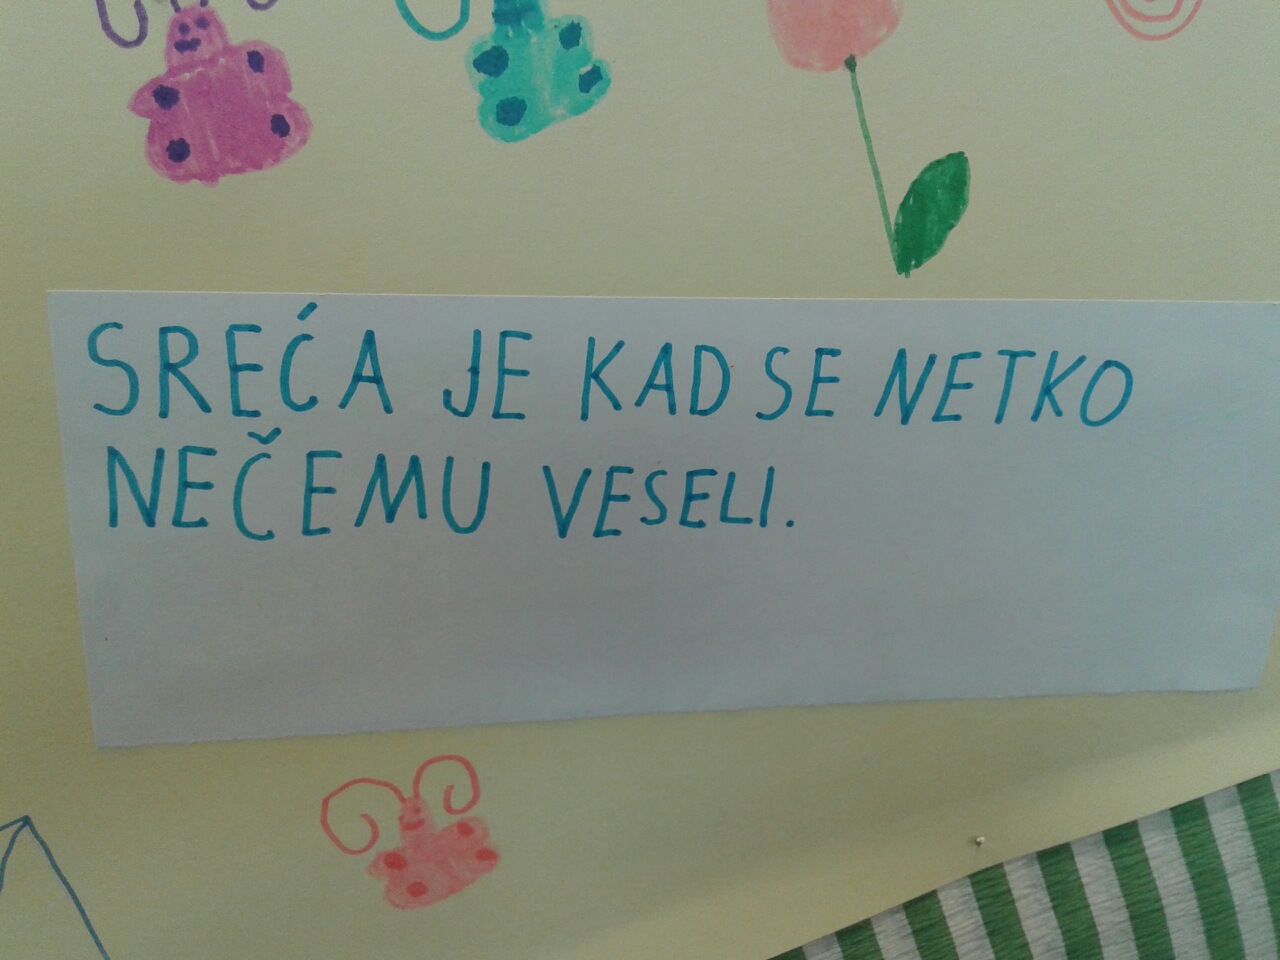 SREĆA JE KAD SE NETKO
NEČEMU VESELI.